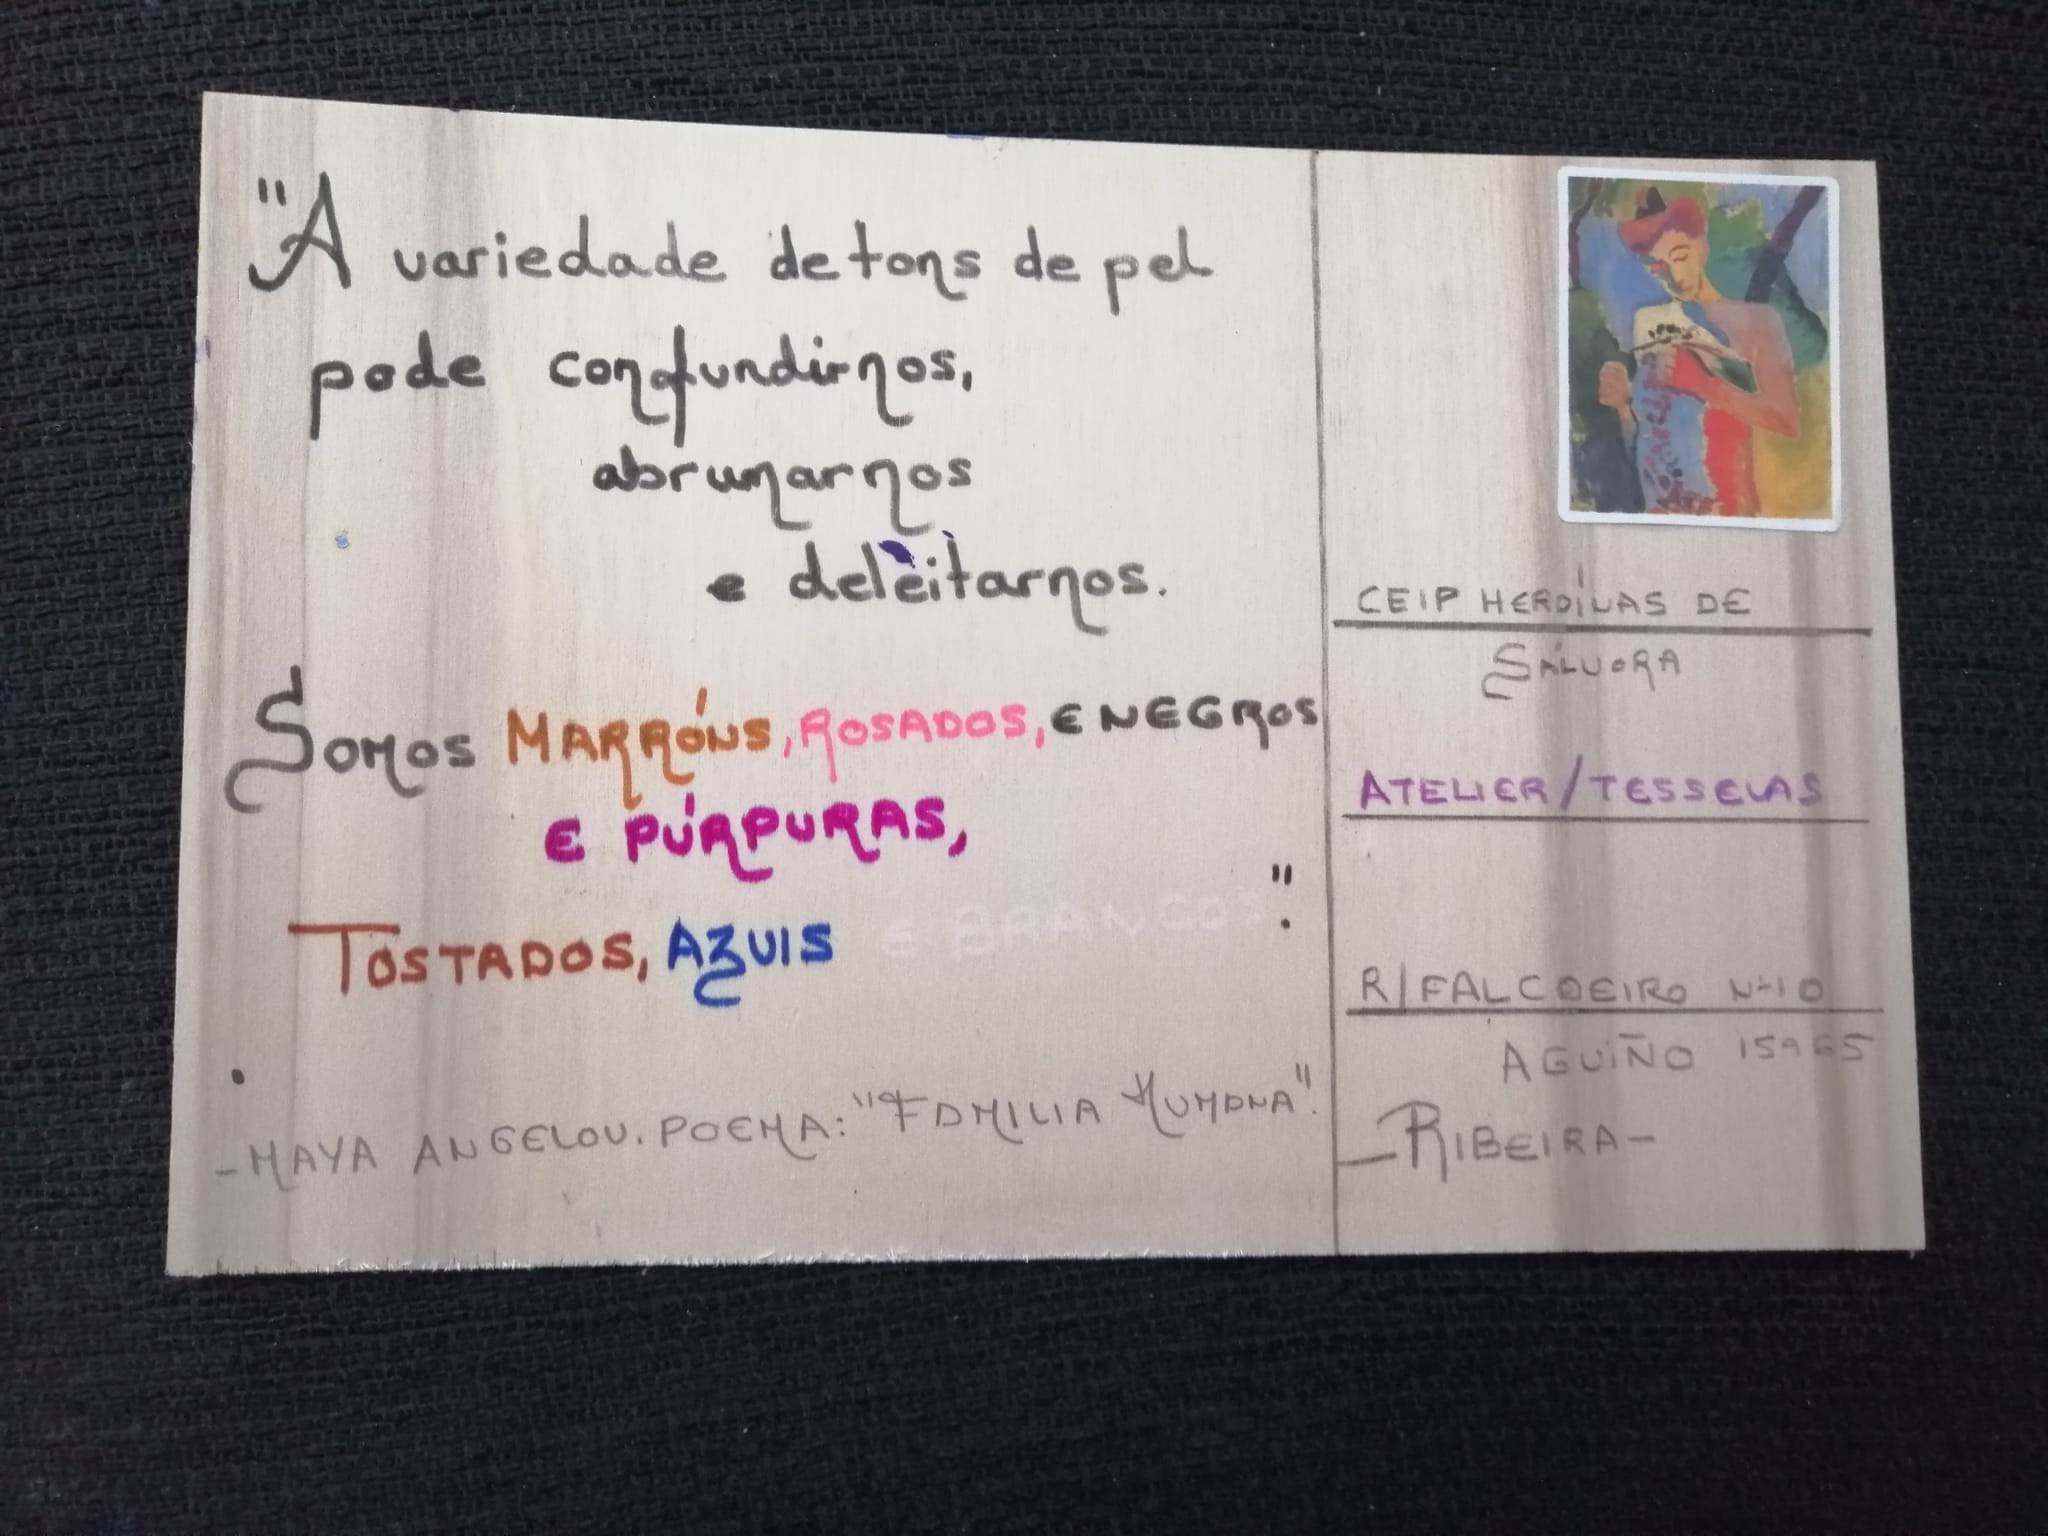 "A variedade de tons de pel
pode confundirnos,
abrumarnos
e deleitarnos.
Somos MARRÓNS, ROSADOS, E NEGROS
E PÚRPURAS,
TOSTADOS, AZUIS E BRANCOS".
- MAYA ANGELOU. POEMA: "FAMILIA HUMANA".
CEIP HEROÍNAS DE
SÁLVORA
ATELIER/TESSELAS
R/FALCOEIRO Nº10
AGUIÑO 15965
- RIBEIRA -